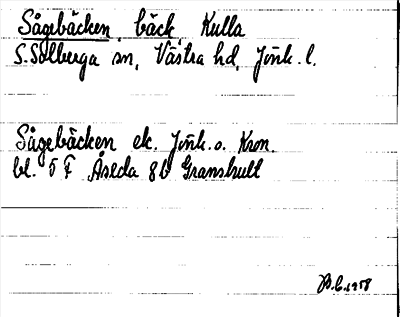 Sågebäcken, bäck, Kulla
S. Solberga sn, Västra hd, Jönk. l.
Sågebäcken ek. Jönk. o. Kron.
bl. 5 F Åseda 8b Granshult
1958